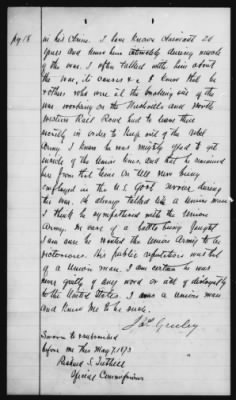 Pg 18
in his Claim. I have known Claimant 20
years and knew him intimately during much
of the war. I often talked with him about
the war, its causes &c. I know that he
& others who were at the breaking out of the
war working on the Nashville and North
Western Rail Road had to leave there
secretly in order to keep out of the rebel
Army. I know he was mighty glad to get
inside of the Union lines, and that he remained
here from that time on till now being
employed in the U.S. Govt. service during
the war. He always talked like a Union man
I think he sympathized with the Union
Army. In case of a battle being fought
I am sure he wanted the Union Army to be
victorious. His public reputation was that
of a Union man. I am certain he was
never guilty of any word or act of disloyalty
to the United States. I was a Union man
and knew him to be such.
Gurley
Sworn to & subscribed
before me this May 7. 1873
Tuthill
Special Commissioner